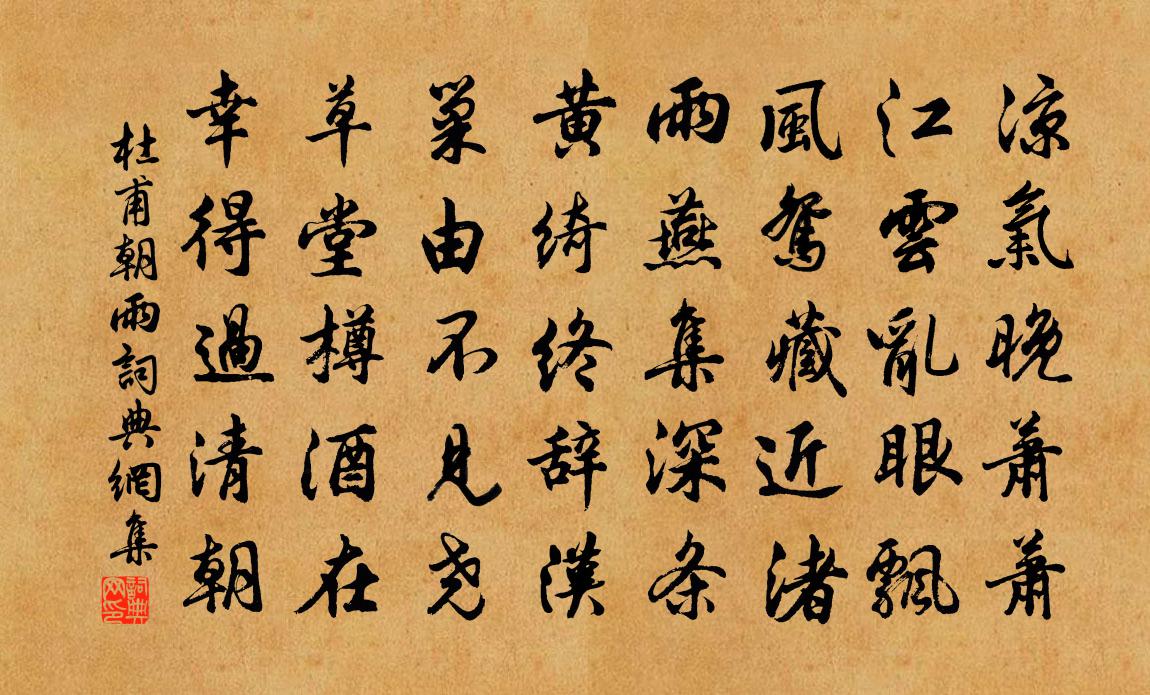 涼氣晚蕭蕭
江雲亂眼飄
風鴛藏近渚
雨燕集深条
黄綺终辞漢
巢由不見尧
草堂樽酒在
幸得過清朝
杜甫朝雨詞典網集
詞典
网印